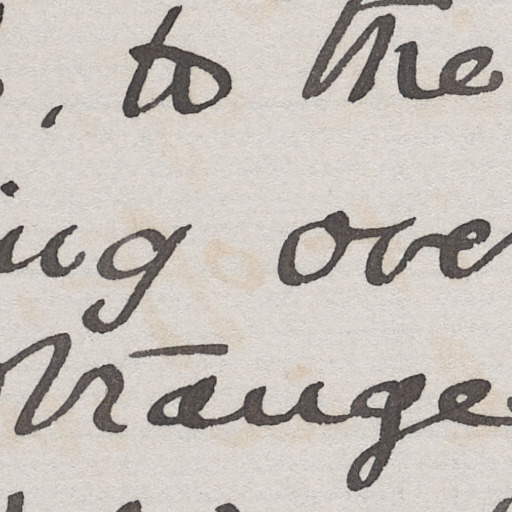 , to the
ing over
strange